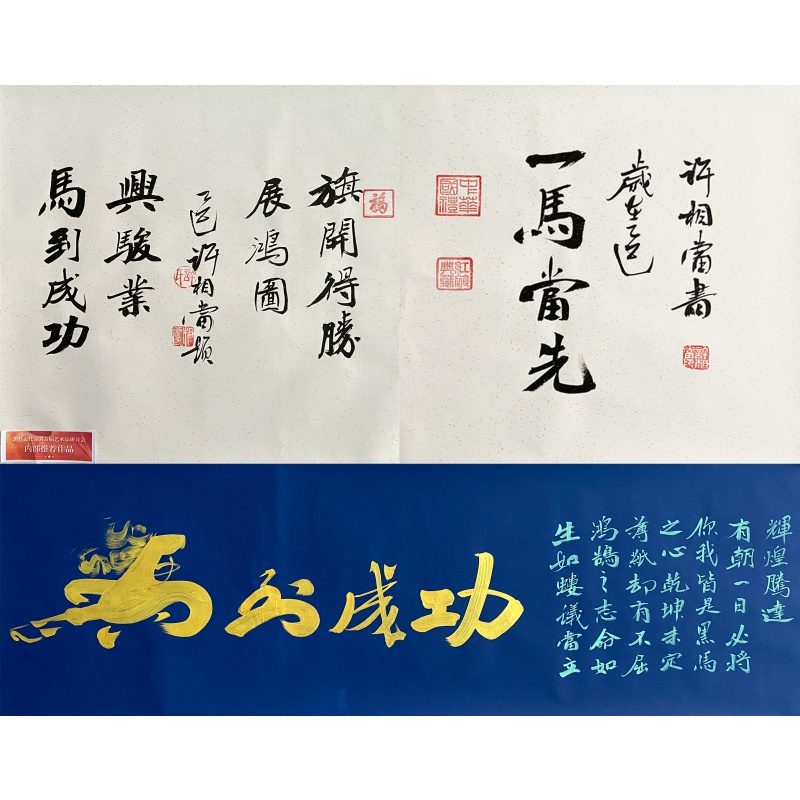 福
旗開得勝
展鴻圖
乙巳许相當題
興駿業
馬到成功
内部推荐作品
许相當書
歲在乙巳
一馬當先
中華國禮
馬到成功
生如蝼議當立
鸿鵠之志命如
薄紙却有不屈
之心乾坤未定
你我皆是黑馬
有朝一日必將
輝煌腾達